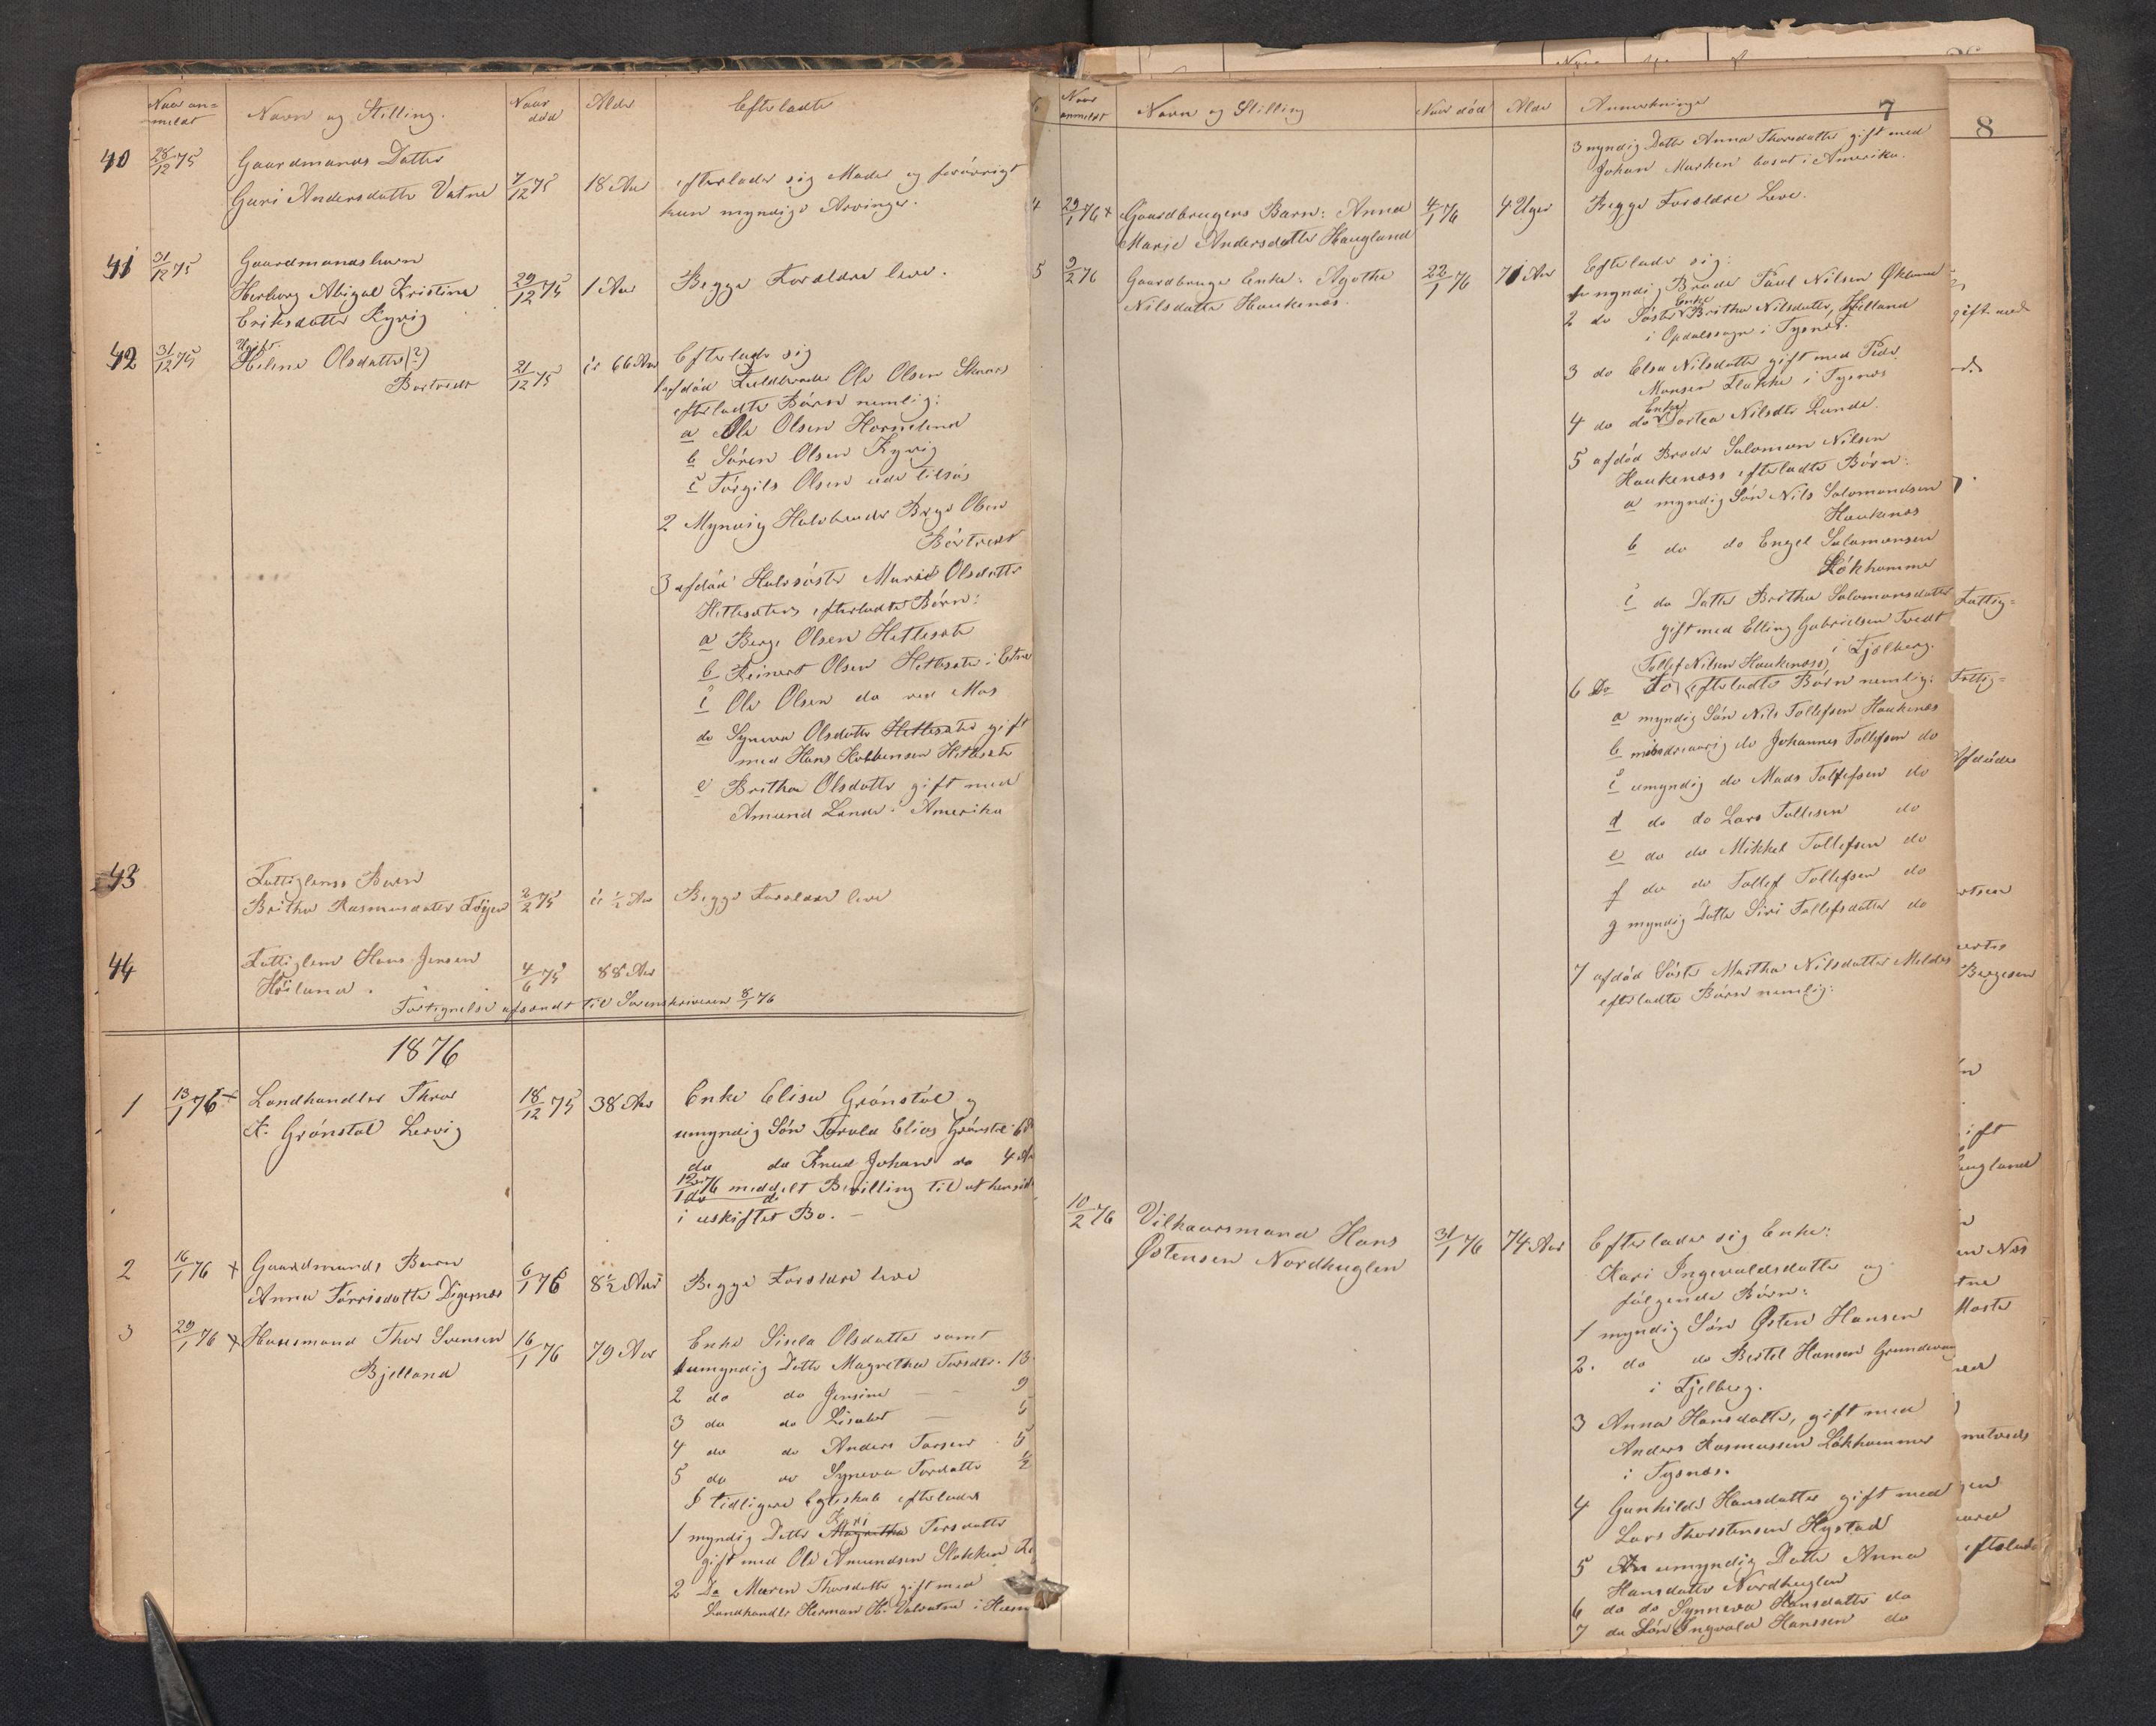 Naar an-
meldt
Navn og Stilling.
Naar
død
Alder
Efterladte
40 28/12 75 Gaardmands Datter
Guri Andersdatter Vatne 7/12 75 18 Aar efterlader sig Moder og forøvrigt
kun myndige Arvinger.
41 31/12 75 Gaardmandsbarn
Herborg Abigal Kristine 29/12 75 1 Aar Begge Forældre leve.
Eriksdatter Kyvig
42 31/12 75 Ugift
Helene Olsdatter (?) 21/12 75 66 Aar Efterlader sig
Bortvedt
1 afdød Fuldbroder Ole Olsen
efterladte Børn nemlig:
a Ole Olsen
b Søren Olsen Kyvig
c Torgils Olsen
2 Myndig Halvbroder Berge Olsen
Bortvedt
3 afdød Halvsøster Marie Olsdatter
Hettesæters efterladte Børn:
a Berge Olsen Hettesæter
b Reinert Olsen Hettesæter i Etne
c Ole Olsen do ved Mos
do Synneva Olsdatter Hettesæter gift
med Hans Hettesæter
e Britha Olsdatter gift med
Amund Lande i Amerika
43 Fattiglems Barn
Britha Rasmusdatter 2/2 75 1/2 Aar Begge Forældre leve
44 Fattiglem Hans Jensen 4/6 75 88 Aar
Høiland.
Fortegnelse afsendt til Sorenskriveren 8/1 76
1876
1 13/1 76 + Landhandler Thor 18/12 75 38 Aar Enke Elisa Grønstøl og
A. Grønstøl Lervig
umyndig Søn Torvald Elias Grønstøl 6
do do Knud Johan do 4
13/1 76 meddelt Bevilling til at hensidde
i uskiftet Bo. —
2 16/1 76 + Gaardmands Barn 6/1 76 8 1/2 Aar Begge Forældre leve
Anna Tørrisdatter Digernes
3 29/1 76 + Huusmand Thor Svensen 16/1 76 79 Aar Enke Sisela Olsdatter samt
Bjelland
1 umyndig Datter Magretha Torsdtr. 13
2 do do Jensine — — 9
3 do do Lisabet —
4 do do Anders Torsen . 5
5 do do Synneva Tordatter 1/2
I tidligere Egteskab efterlader
1 myndig Datter Kari Magretha Torsdatter
gift med Ole Amundsen Stokken
2 Do Maren Thorsdatter gift med
Landhandler Herman H. Valvatne i
7
8
Naar
anmeldt
Navn og Stilling
Naar død
Alder
Anmerkninger
3 myndig Datter Anna Thorsdatter gift med
Johan Marken bosat i Amerika.
4 29/1 76 + Gaardbrugers Barn: Anna 4/1 76 4 Uger Begge Forældre Leve.
Marie Andersdatter Haugland
5 9/2 76 Gaardbruger Enke: Agathe 22/1 76 71 Aar Efterlader sig:
Nilsdatter Haukenæs.
1 myndig Broder Paul Nilsen Økland
2 do Søster Enke Britha Nilsdatter, Helland
i Opdalssogn i Tysnes.
3 do Elsa Nilsdatter gift med Peder
Monsen Flakke i Tysnæs
4 do do Enke Dortea Nilsdtr Lunde.
5 afdød Broder Salomon Nilsen
Haukenæss efterladte Børn:
a myndig Søn Nils Salomondsen
Haukenæs
b do do Engel Salomonsen
Løkhammer
c do Datter Britha Salomonsdatter
gift med Elling Gabrielsen Tvedt
i Fjelberg.
(Tollef Nilsen Haukenæss)
6 Do do efterladte Børn nemlig:
a myndig Søn Nils Tollefsen Haukenæs
b mindreaarig do Johannes Tollefsen do
c umyndig do Mads Tollefsen do
d do do Lars Tollefsen do
e do do Mikkel Tollefsen do
f do do Tollef Tollefsen do
g myndig Datter Siri Tollefsdatter do
7 afdød Søster Martha Nilsdatter Meldes
efterladte Børn nemlig:
10/2 76 Vilkaarsmand Hans 31/1 76 74 Aar Efterlader sig Enke:
Østensen Nordhuglen
Kari Ingevaldsdatter og
følgende Børn:
1 myndig Søn Østen Hansen
2. do do Bertel Hansen
i Fjelberg.
3 Anna Hansdatter, gift med
Anders Rasmussen Løkhammer
i Tysnæs.
4 Gunhilde Hansdatter gift med
Lars Thorstensen Hystad
5 umyndig Datter Anna
Hansdatter Nordhuglen
6 do do Synneva Hansdatter do
7 do Søn Ingvald Hanssen do